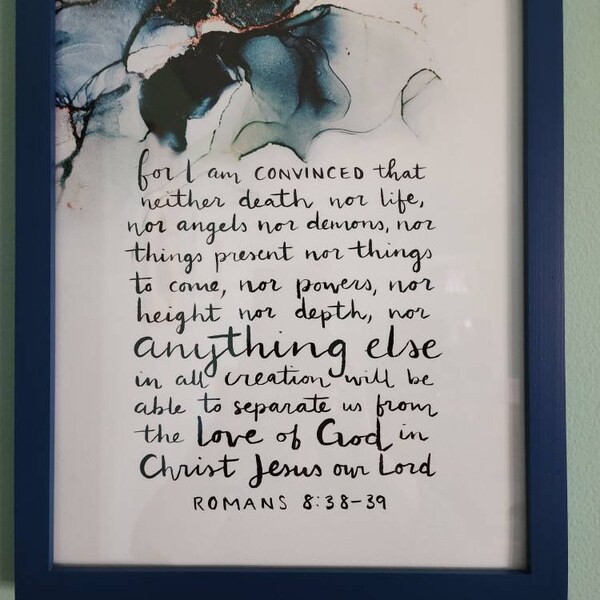 for I am CONVINCED that
neither death nor life,
nor angels nor demons, nor
things present nor things
to come, nor powers, nor
height nor depth, nor
anything else
in all creation will be
able to separate us from
the love of God in
Christ Jesus our Lord
ROMANS 8:38-39